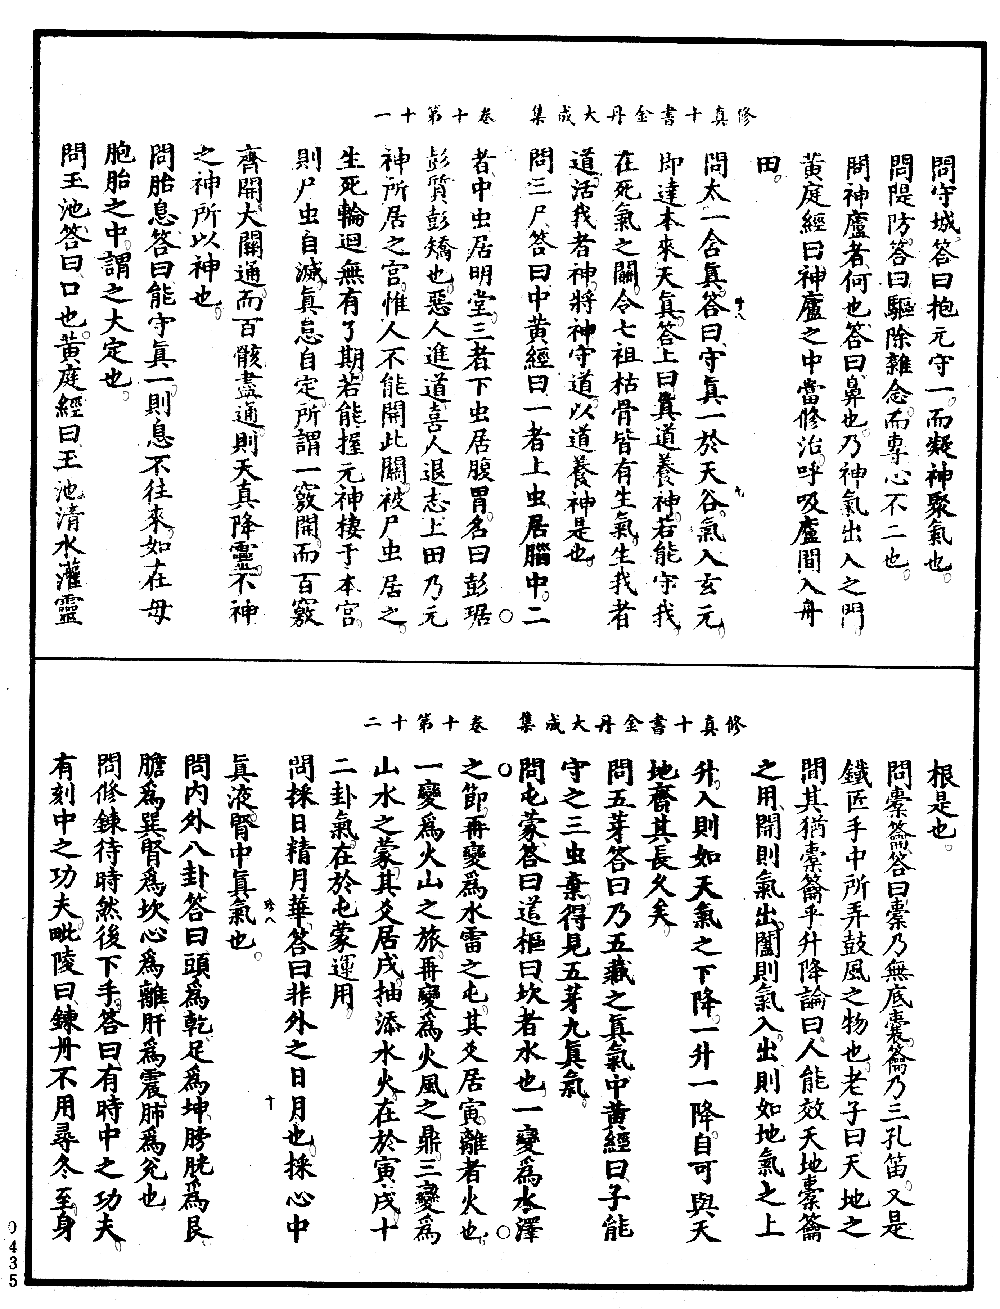 修真十書金丹大成集　卷十第十一
問守城答曰抱元守一而凝神聚氣也
問隄防答曰驅除雜念而專心不二也
問神廬者何也答曰鼻也乃神氣出入之門
黃庭經曰神廬之中當修治呼吸廬間入丹
田
問太一含眞答曰守眞一於天谷氣入玄元
即達本來天眞答上曰眞道養神若能守我
在死氣之關令七祖枯骨皆有生氣生我者
道活我者神將神守道以道養神是也
問三尸答曰中黃經曰一者上虫居腦中二
者中虫居明堂三者下虫居腹胃名曰彭琚
彭質彭矯也惡人進道喜人退志上田乃元
神所居之宮惟人不能開此關被尸虫居之
生死輪迴無有了期若能握元神棲于本宮
則尸虫自滅眞息自定所謂一竅開而百竅
齊開大關通而百骸盡通則天真降靈不神
之神所以神也
問胎息答曰能守真一則息不往來如在母
胞胎之中謂之大定也
問玉池答曰口也黃庭經曰玉池清水灌靈
修真十書金丹大成集　卷十第十二
根是也
問橐籥答曰橐乃無底囊籥乃三孔笛又是
鐵匠手中所弄鼓風之物也老子曰天地之
間其猶橐籥乎升降論曰人能效天地橐籥
之用開則氣出闔則氣入出則如地氣之上
升入則如天氣之下降一升一降自可與天
地齊其長久矣
問五芽答曰乃五藏之眞氣中黃經曰子能
守之三虫棄得見五芽九眞氣
問屯蒙答曰道樞曰坎者水也一變爲水澤
之節再變爲水雷之屯其爻居寅離者火也
一變爲火山之旅再變爲火風之鼎三變爲
山水之蒙其爻居戌抽添水火在於寅戌十
二卦氣在於屯蒙運用
問採日精月華答曰非外之日月也採心中
眞液腎中眞氣也
問內外八卦答曰頭爲乾足爲坤膀胱爲艮
膽爲巽腎爲坎心爲離肝爲震肺爲兌也
問修鍊待時然後下手答曰有時中之功夫
有刻中之功夫毗陵曰鍊丹不用尋冬至身
0435